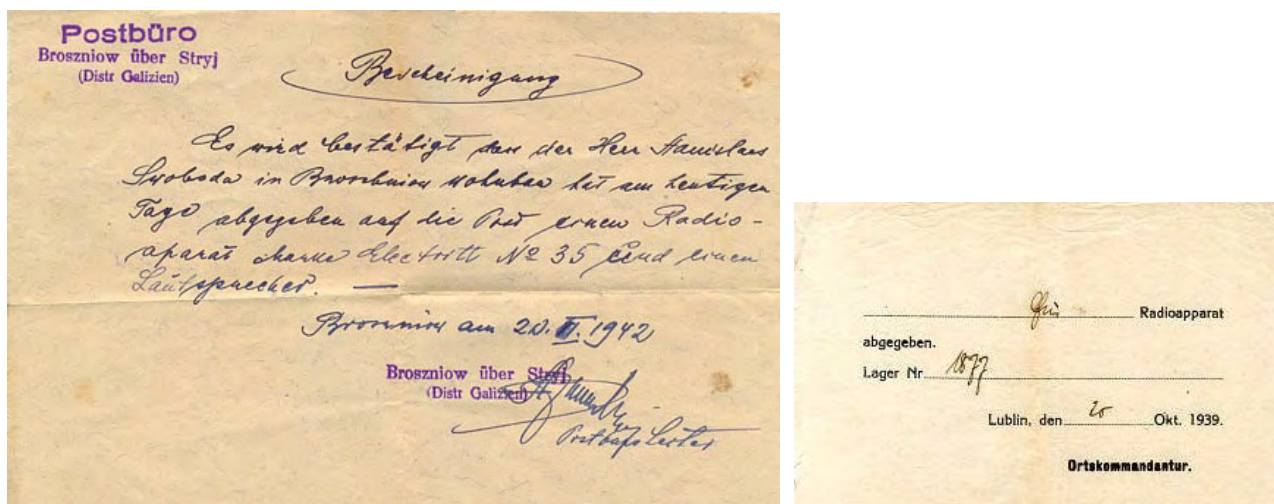 Postbüro
Broszniow über Stryj
(Distr Galizien)
Bescheinigung
Es wird bestätigt dass der Herr Stanislaus
Swoboda in Broschniow wohnhaft hat am heutigen
Tage abgegeben auf die Post einen Radio-
aparat Marke Electritt № 35 und einen
Lautsprecher. —
Broschniow am 20. II. 1942
Broszniow über Stryj
(Distr Galizien)
Radioapparat
abgegeben.
Lager Nr. 1877
Lublin, den 20 Okt. 1939.
Ortskommandantur.